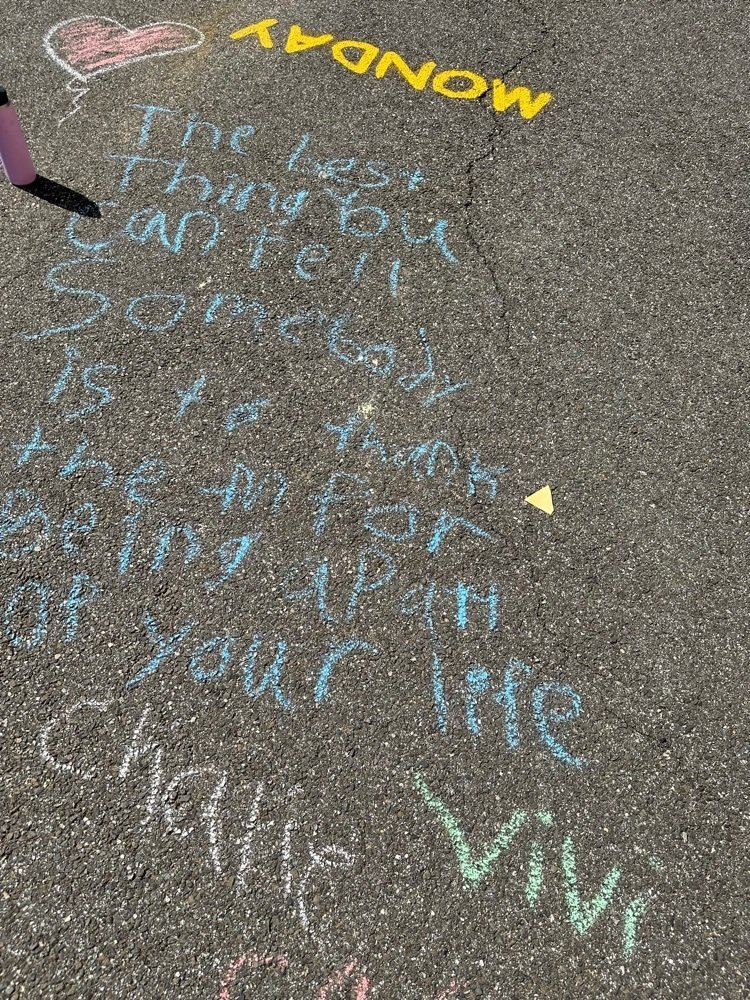 MONDAY
The best
Thing you
can tell
Somebody
is to thank
them for
Being apart
of your life
Charlie
Vivi